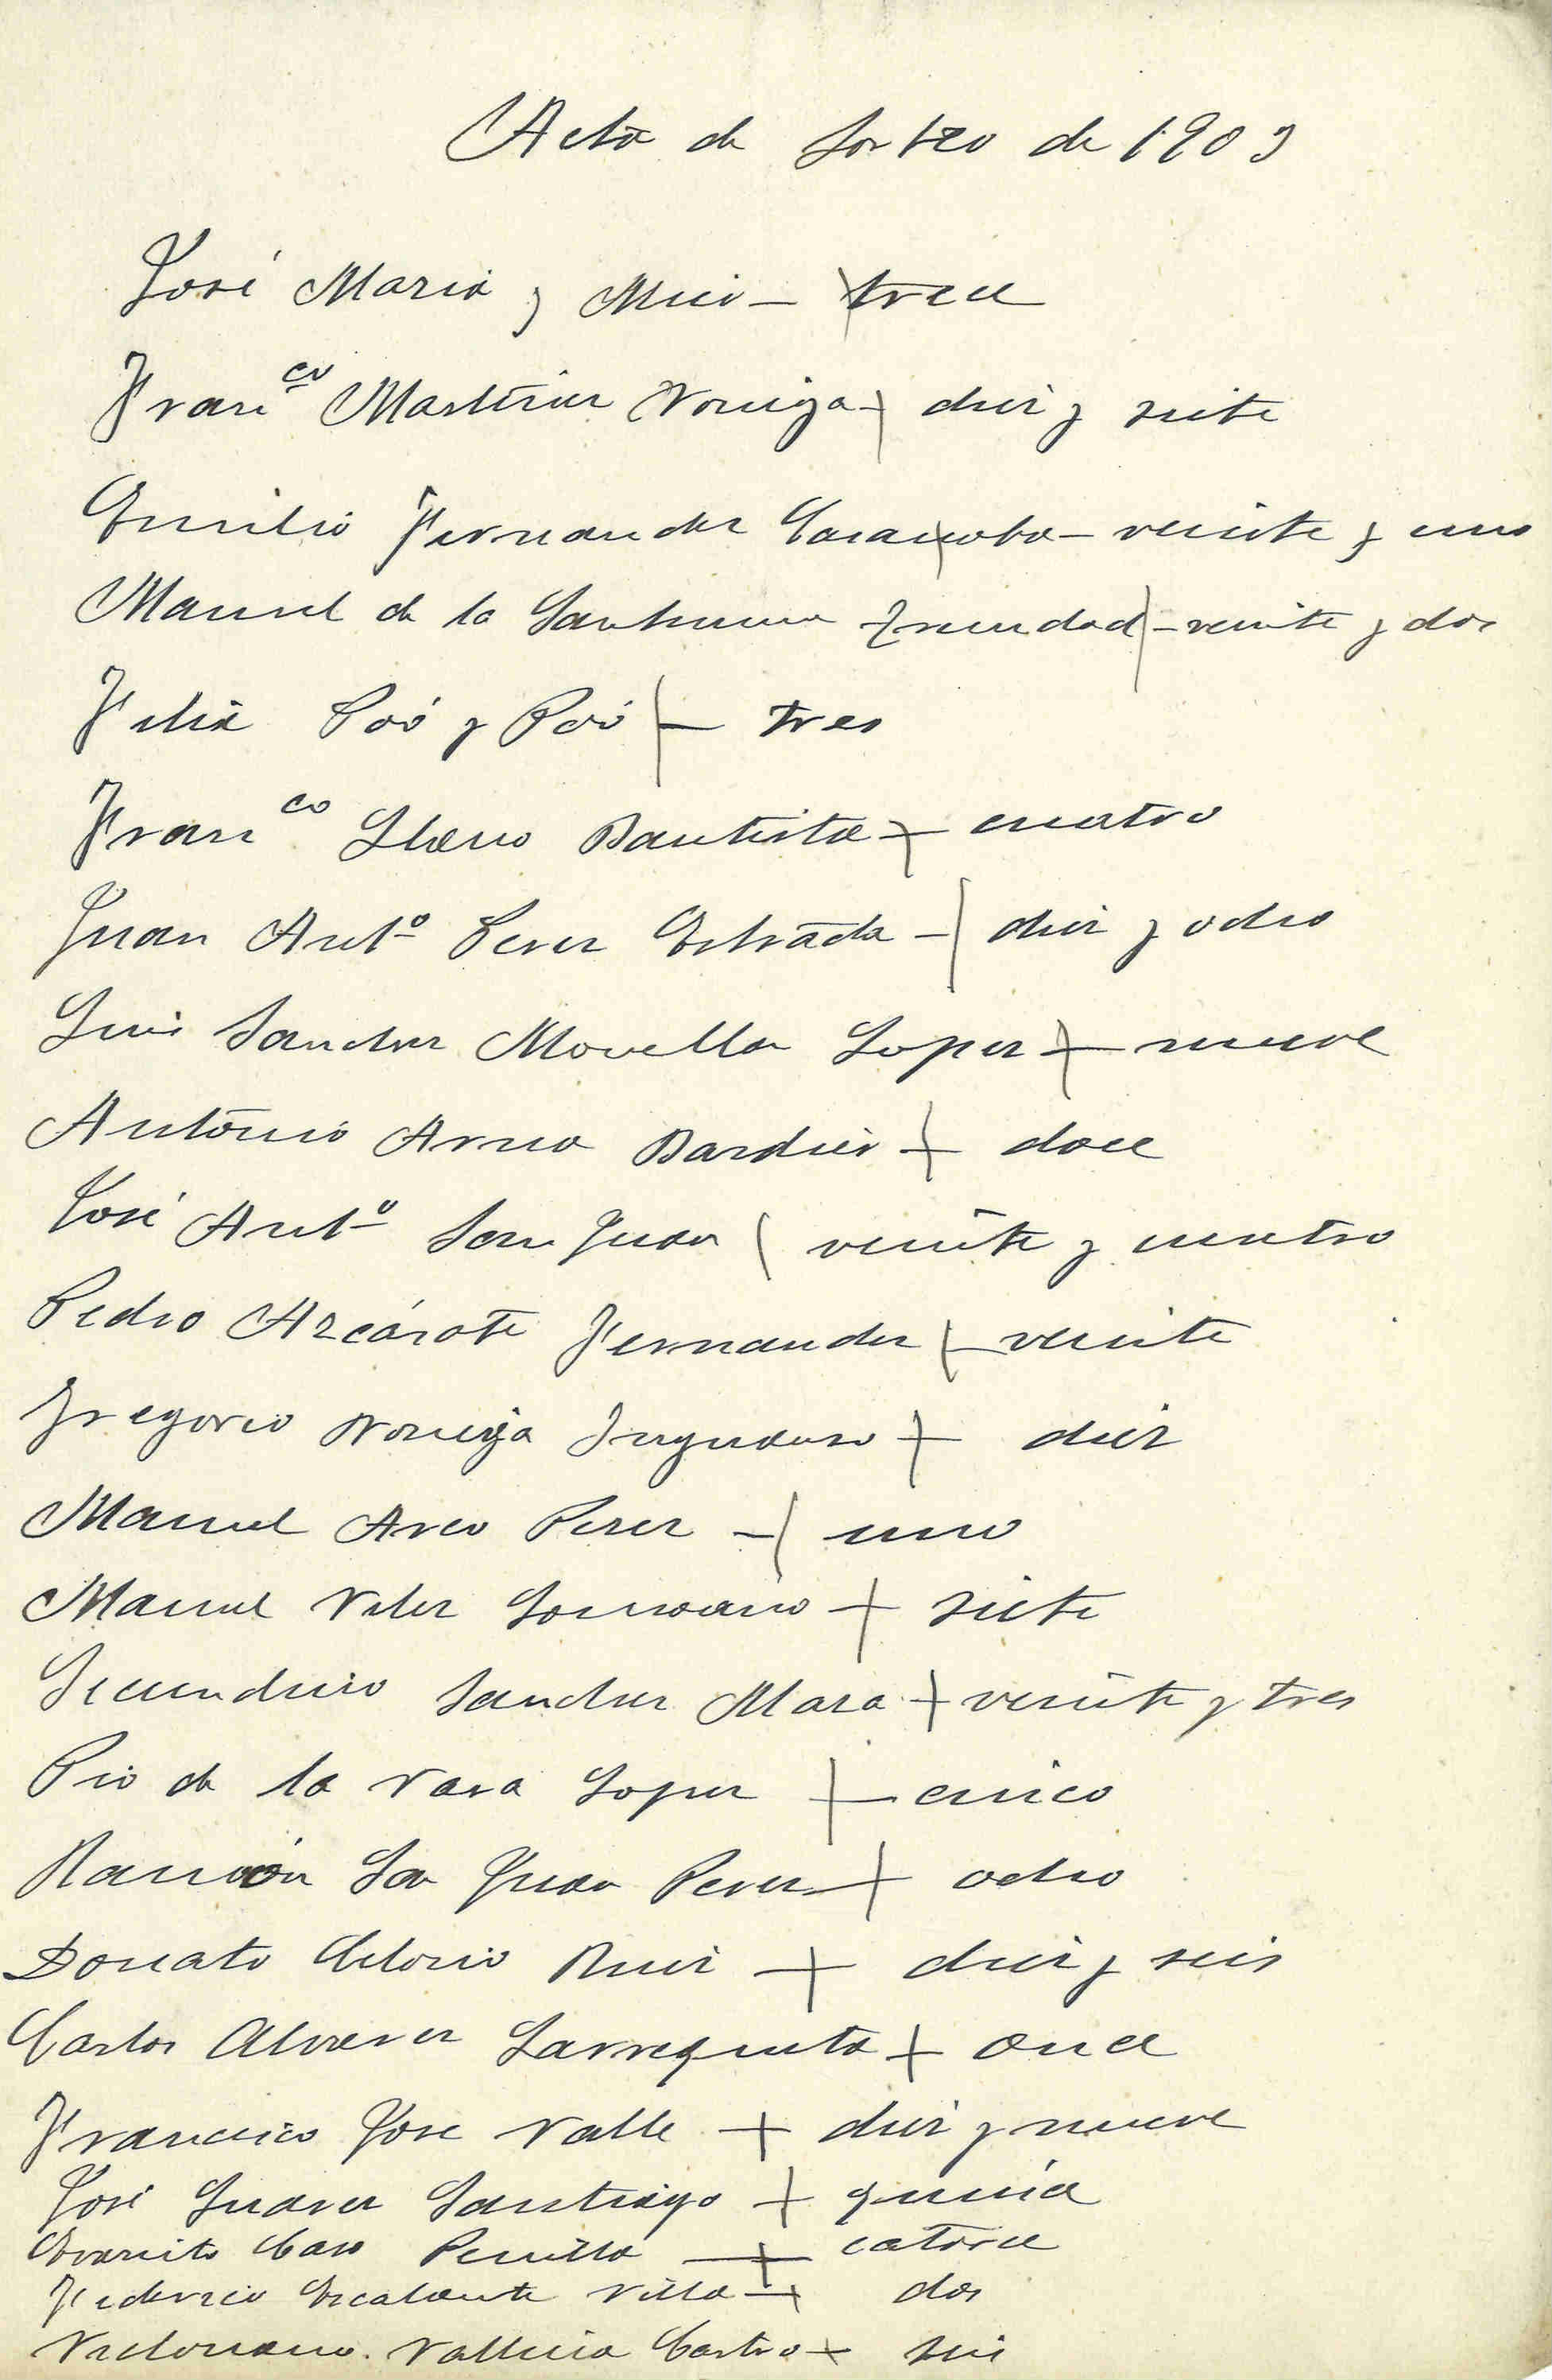 Acta de Sorteo de 1903
José Maria y Mier - trece
Franco Martinez Noriega - diez y siete
Emilio Fernandez Casanoba - veinte y uno
Manuel de la Santisima Trinidad - veinte y dos
Felix Poó y Poó - tres
Franco Llano Bautista - cuatro
Juan Anto Perez Estrada - diez y ocho
Luis Sanchez Movellan Lopez - nueve
Antonio Arno Bardier - doce
José Anto San Juan veinte y cuatro
Pedro Azcárate Fernandez - veinte
Gregorio Noriega - diez
Manuel Arco Perez - uno
Manuel Velez - siete
Secundino Sanchez Maza - veinte y tres
Pio de la Vara Lopez - cinco
Ramón San Juan Perez - ocho
Donato Celorio Ruiz - diez y seis
Carlos Alvarez - once
Francisco José Valle - diez y nueve
José Suarez Santiago - quince
Evaristo Caso - catorce
Federico Escalante Villa - dos
Victoriano Vallina Castro - seis